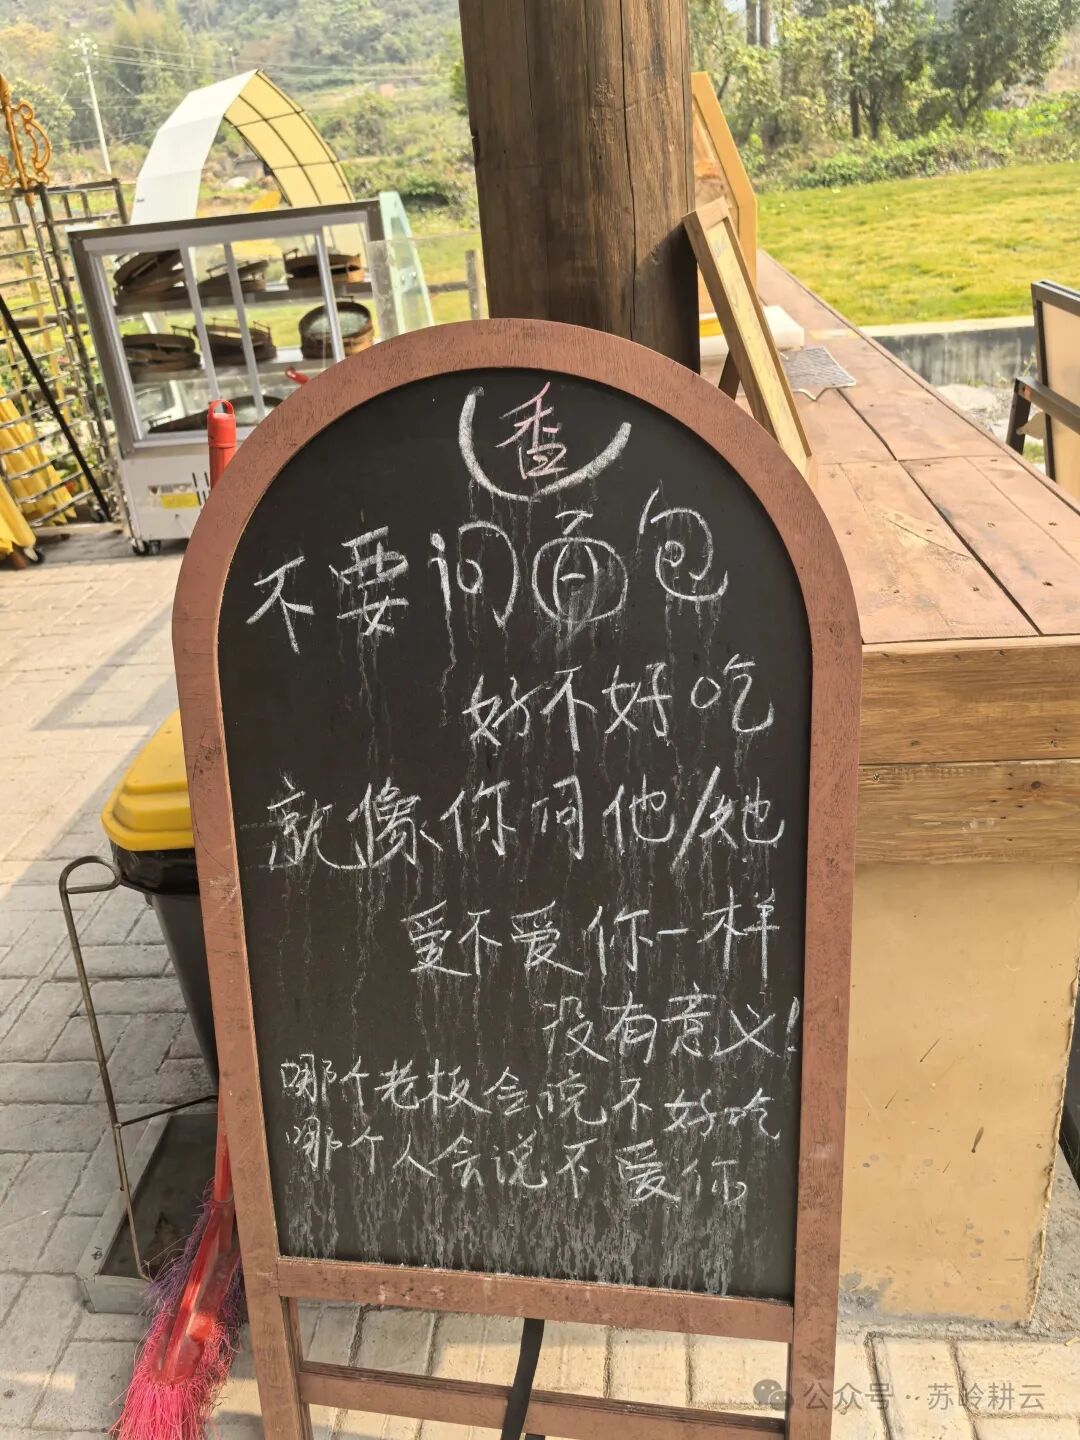 香
不要问面包
好不好吃
就像你问他/她
爱不爱你一样
没有意义!
哪个老板会说不好吃
哪个人会说不爱你
公众号··苏岭耕云